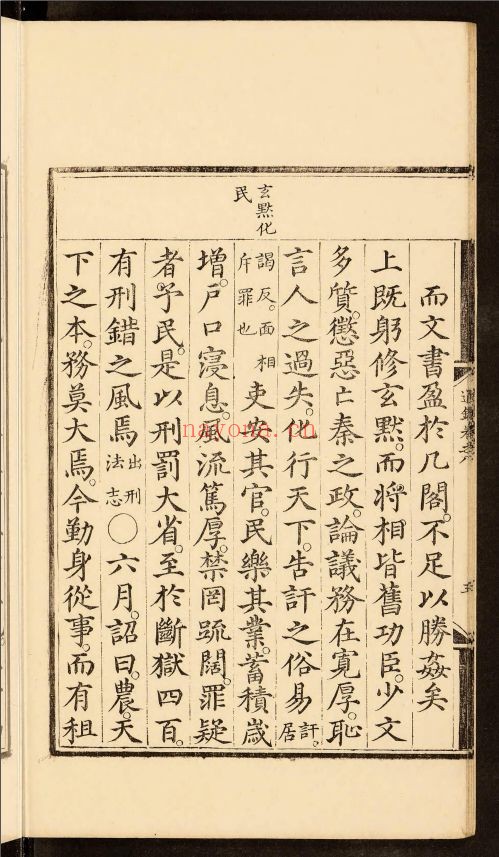 而文書盈於几閣。不足以勝姦矣
上既躬修玄默。而將相皆舊功臣。少文
多質。懲惡亡秦之政。論議務在寬厚。恥
言人之過失。化行天下。告訐之俗易訐居
謁反。面相
斥罪也
吏安其官。民樂其業。蓄積歲
增。戶口寖息。風流篤厚。禁罔疏闊。罪疑
者。予民。是以刑罰大省。至於斷獄四百。
有刑錯之風焉出刑法志〇六月。詔曰。農。天
下之本。務莫大焉。今勤身從事。而有租
玄默化
民
nayona.cn